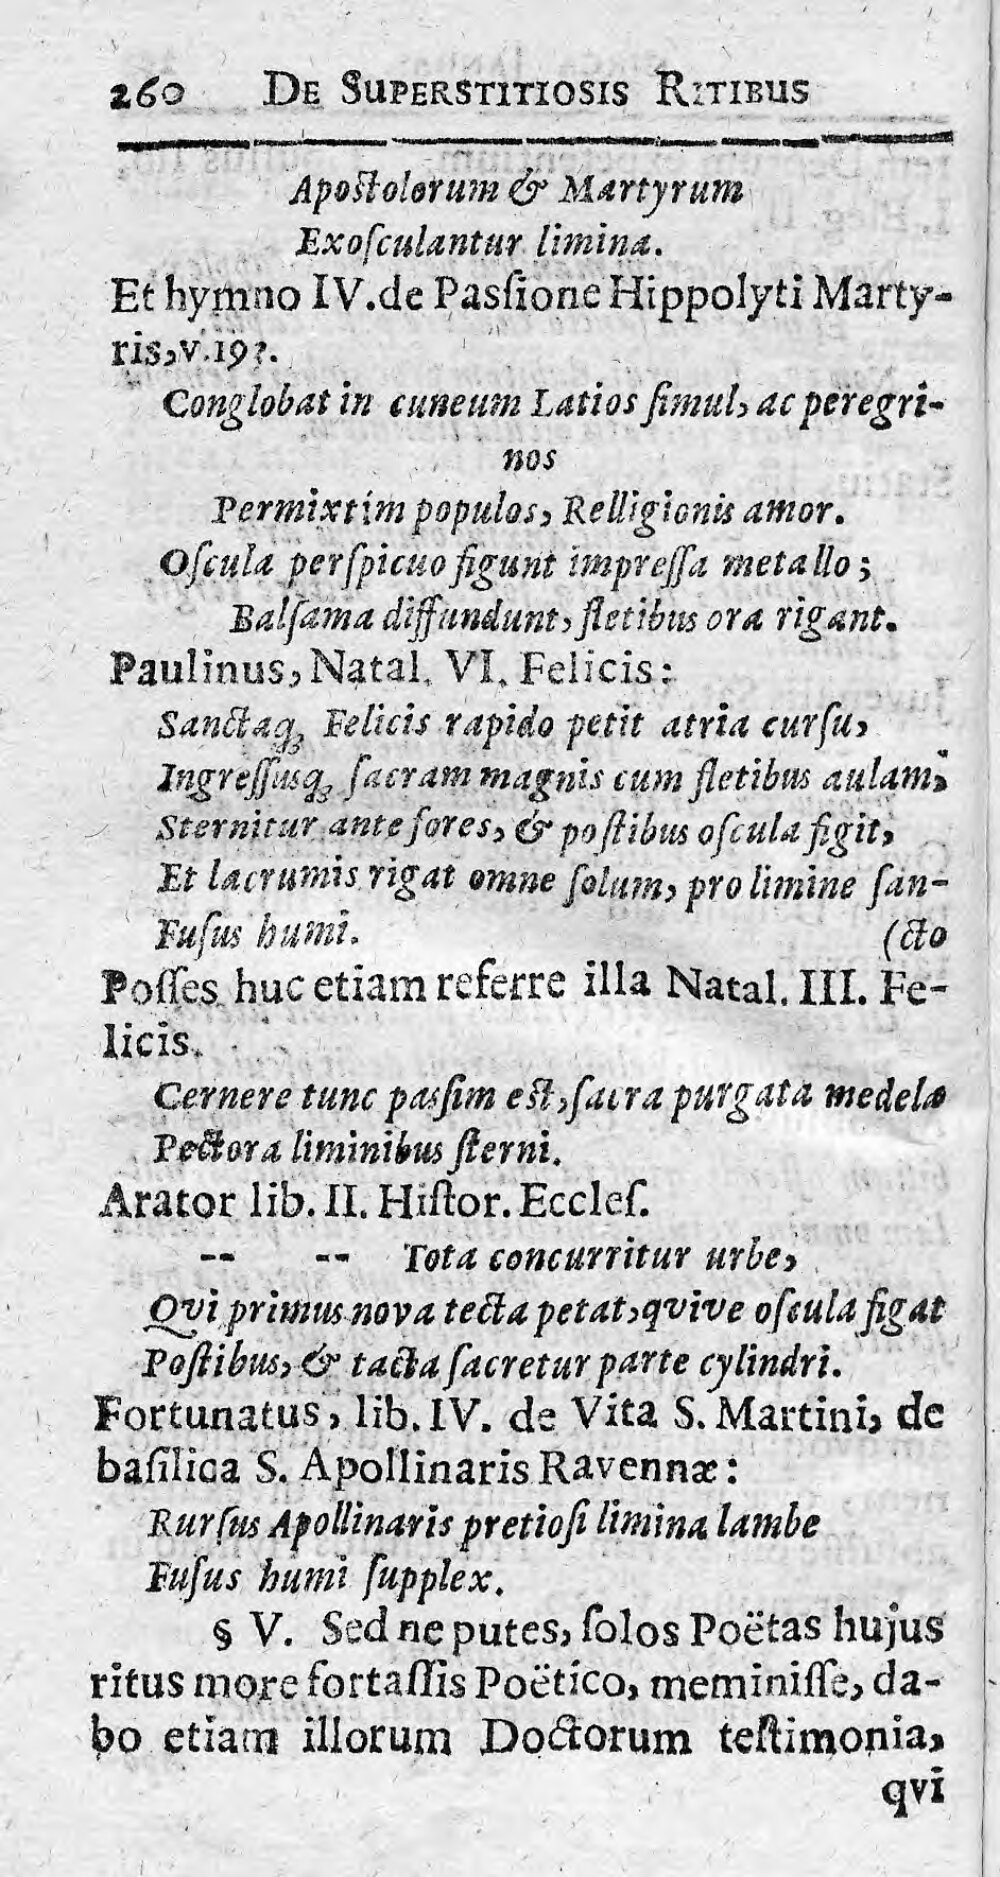 260 De Superstitiosis Ritibus
Apostolorum & Martyrum
Exoſculantur limina.
Et hymno IV. de Paſſione Hippolyti Marty-
ris, v. 19?.
Conglobat in cuneum Latios ſimul, ac peregri-
nos
Permixtim populos, Relligionis amor.
Oſcula perſpicuo figunt impreſſa metallo;
Balſama diffundunt, fletibus ora rigant.
Paulinus, Natal. VI. Felicis:
Sanctaq; Felicis rapido petit atria curſu,
Ingreſſusq; ſacram magnis cum fletibus aulam;
Sternitur ante fores, & poſtibus oſcula figit,
Et lacrumis rigat omne ſolum, pro limine ſan-
Fuſus humi. (cto
Poſſes huc etiam referre illa Natal. III. Fe-
licis.
Cernere tunc paſſim eſt, ſacra purgata medela
Pectora liminibus ſterni.
Arator lib. II. Hiſtor. Eccleſ.
-- -- Tota concurritur urbe,
Qvi primus nova tecta petat, qvive oſcula figat
Poſtibus, & tacta ſacretur parte cylindri.
Fortunatus, lib. IV. de Vita S. Martini, de
baſilica S. Apollinaris Ravennæ:
Rurſus Apollinaris pretioſi limina lambe
Fuſus humi ſupplex.
§ V. Sed ne putes, ſolos Poëtas hujus
ritus more fortaſſis Poëtico, meminiſſe, da-
bo etiam illorum Doctorum teſtimonia,
qvi